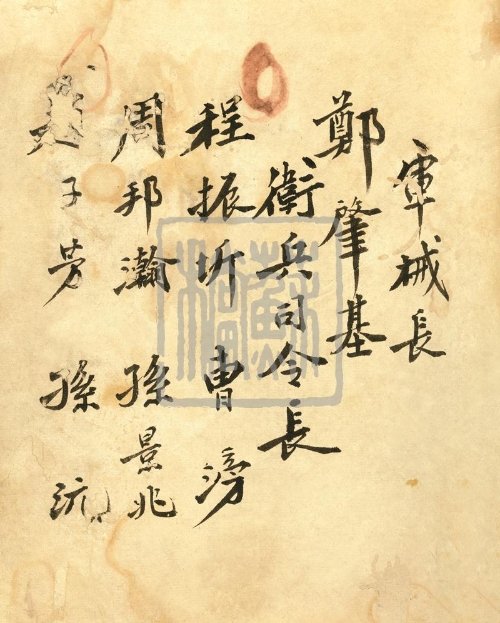 軍械長
鄭肇基
衛兵司令長
程振圻 曹滂
周邦瀚 孫景兆
子芳 孫沆